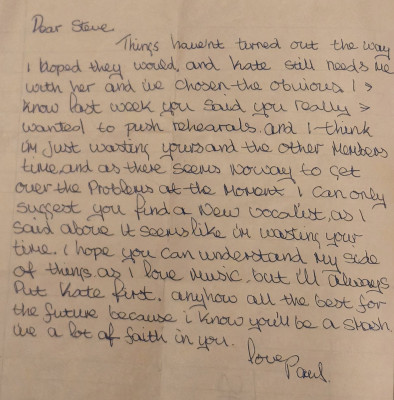 Dear Steve
Things haven't turned out the way
I hoped they would, and Kate still needs me
with her and ive chosen the obvious. I >
know last week you said you really >
wanted to push rehearsals. and I think
i'm just wasting yours and the other members
time, and as there seems noway to get
over the problems at the moment i can only
suggest you find a new vocalist, as I
said above it seems like i'm wasting your
time. i hope you can understand my side
of things as I love music. but i'll always
put Kate first. anyhow all the best for
the future because i know you'll be a smash
ive a lot of faith in you.
love
Paul.